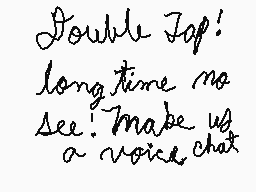 Double Tap!
long time no
see! Make us
a voice chat